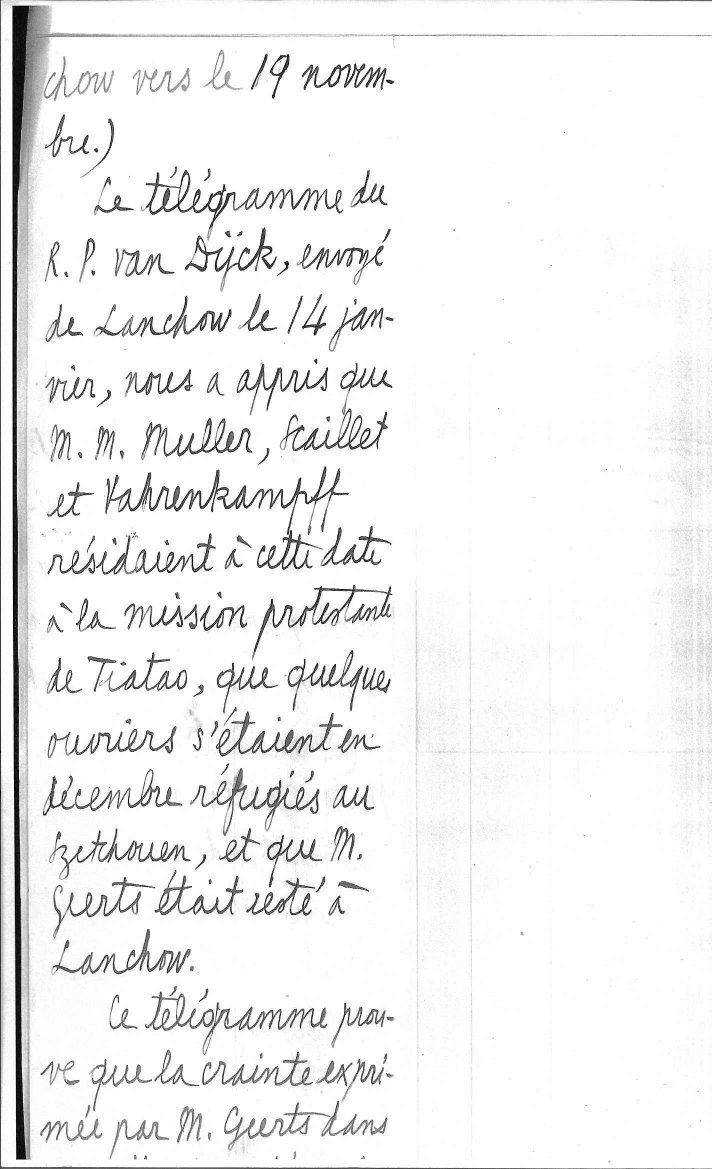 chow vers le 19 novem-
bre.)
Le télégramme du
R. P. van Dÿck, envoyé
de Lanchow le 14 jan-
vier, nous a appris que
M. M. Muller, Scaillet
et Vahrenkampff
résidaient à cette date
à la mission protestante
de Tiatao, que quelques
ouvriers s'étaient en
décembre réfugiés au
Szetchouen, et que M.
Geerts était resté à
Lanchow.
Ce télégramme prou-
ve que la crainte expri-
mée par M. Geerts dans